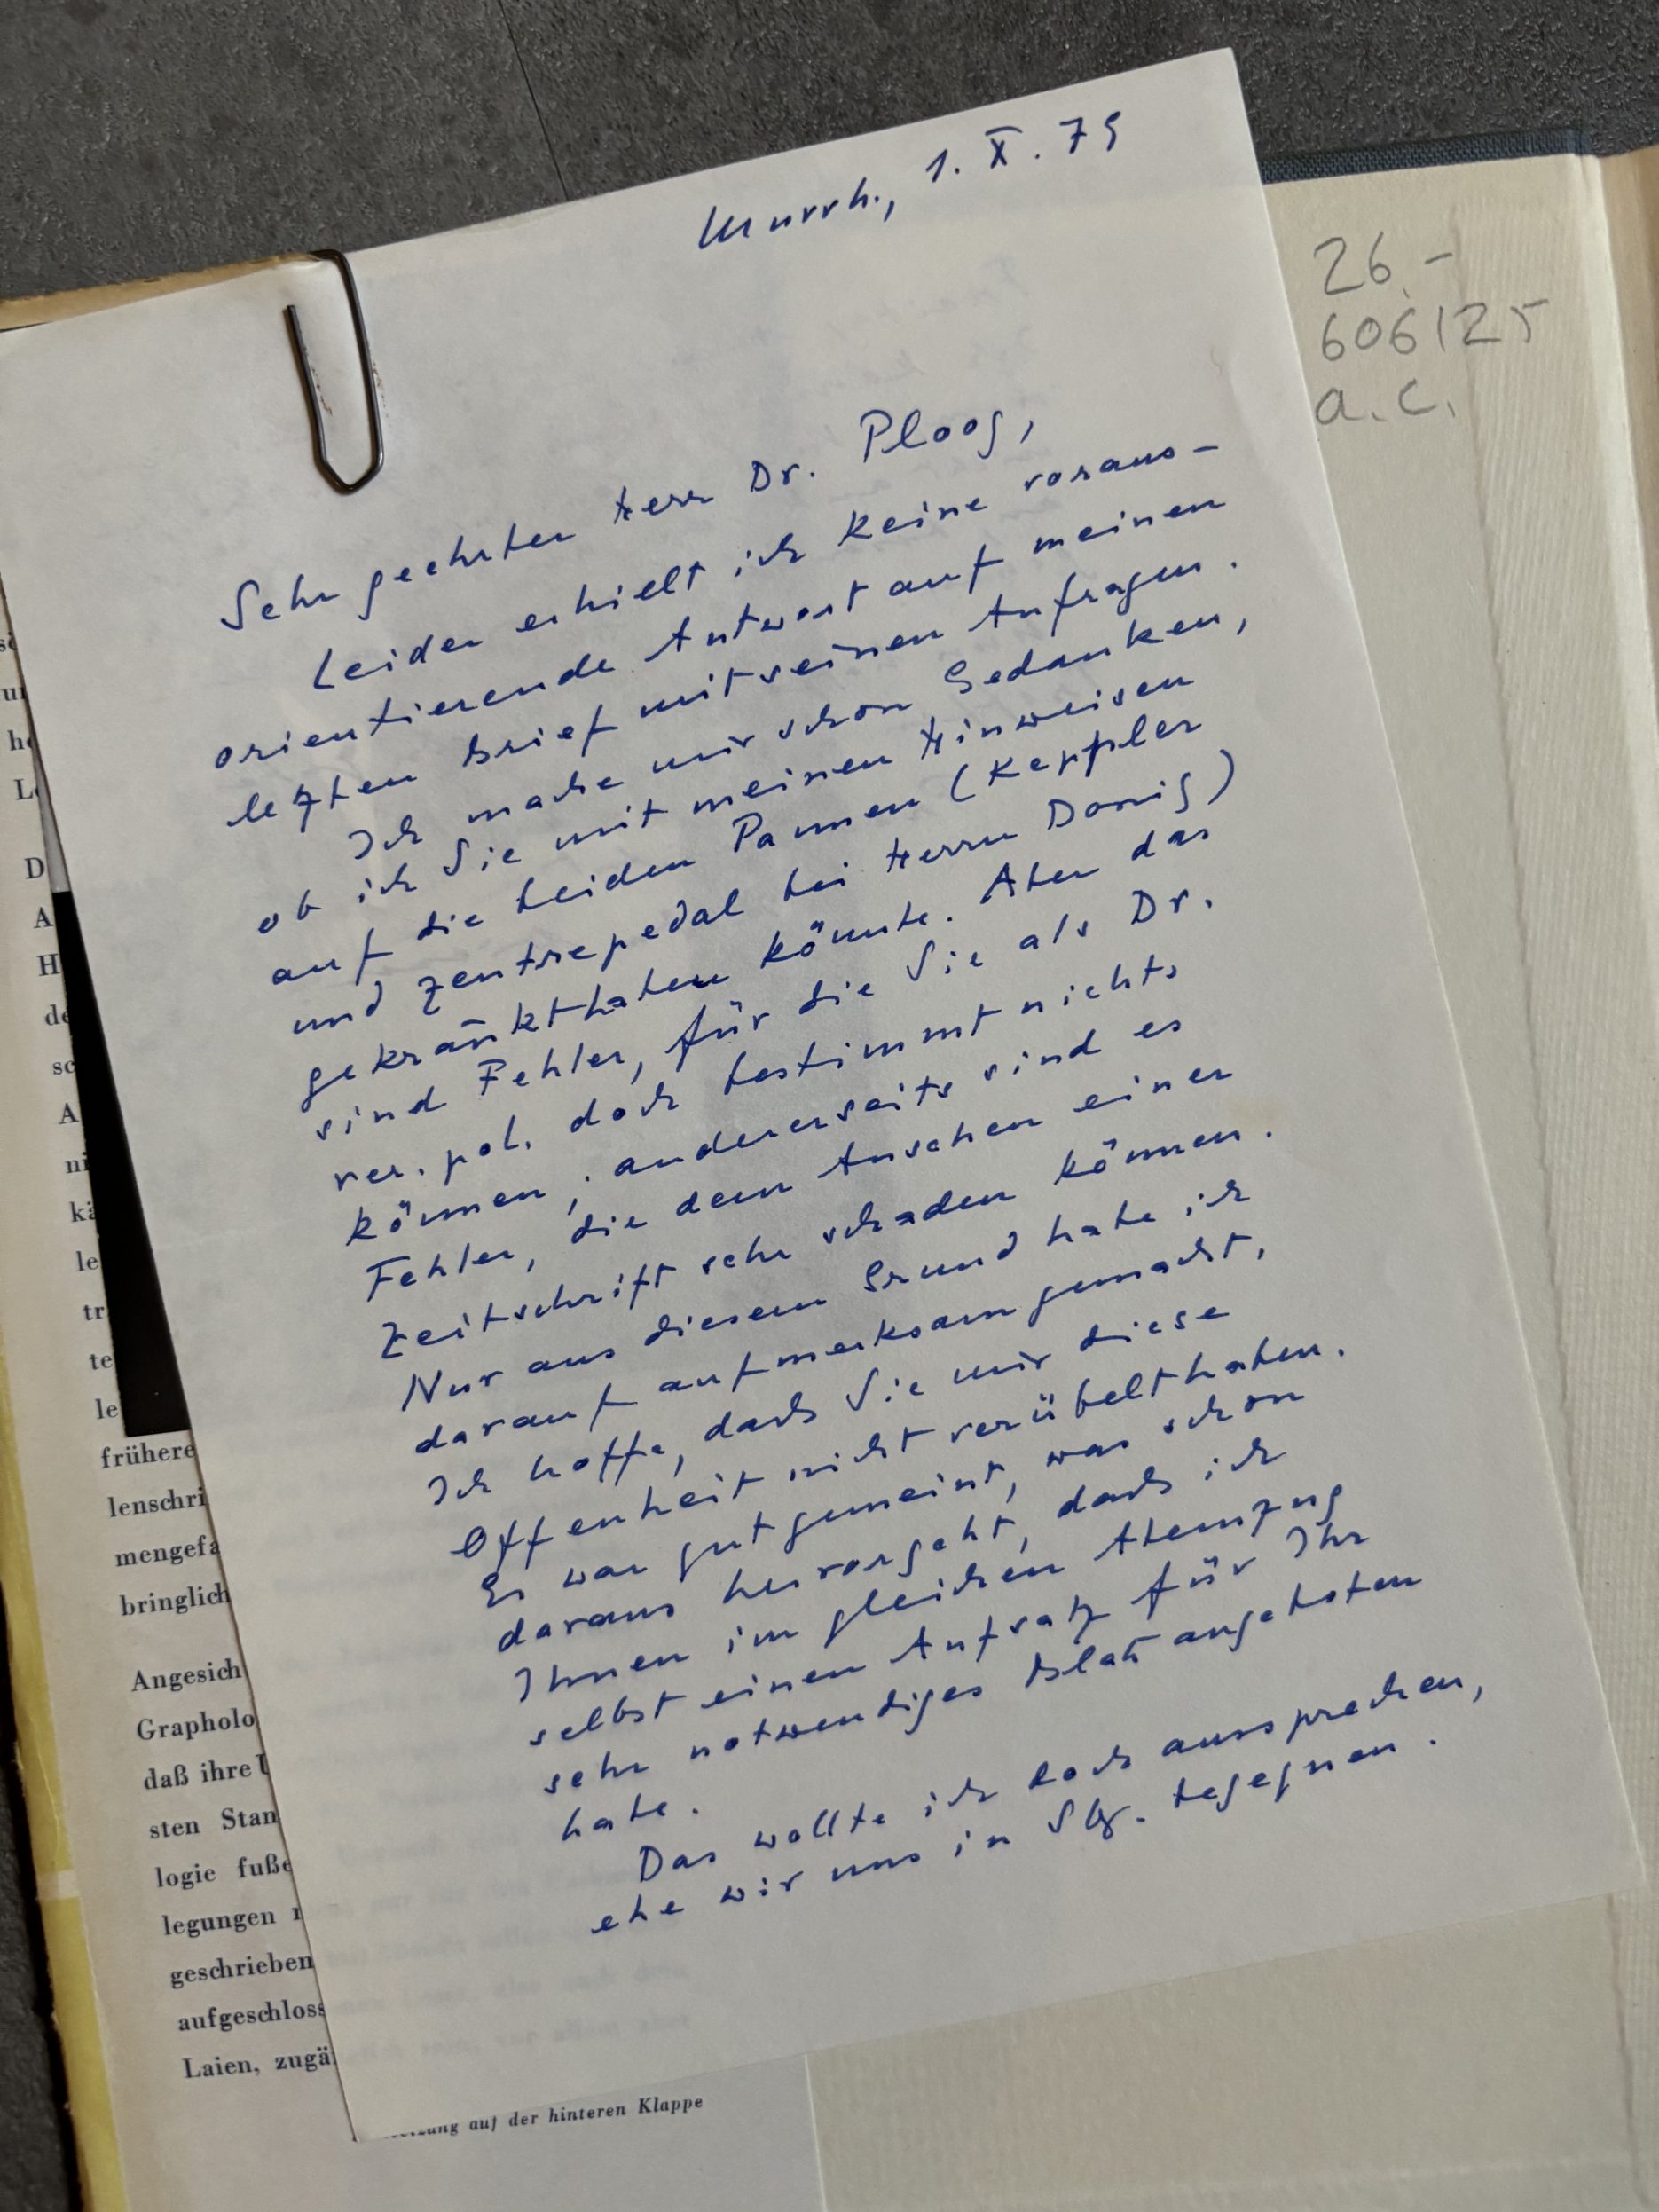 Murrh., 1. X. 79
Sehr geehrter Herr Dr. Ploog,
Leider erhielt ich keine voraus-
orientierende Antwort auf meinen
letzten Brief mit seinen Anfragen.
Ich mache mir schon Gedanken,
ob ich Sie mit meinen Hinweisen
auf die beiden Pannen (Keppler
und Zentrepedal bei Herrn Donig)
gekränkt haben könnte. Aber das
sind Fehler, für die Sie als Dr.
rer. pol. doch bestimmt nichts
können; andererseits sind es
Fehler, die dem Ansehen einer
Zeitschrift sehr schaden können.
Nur aus diesem Grund habe ich
darauf aufmerksam gemacht.
Ich hoffe, dass Sie mir diese
Offenheit nicht verübelt haben.
Es war gut gemeint, was schon
daraus hervorgeht, dass ich
Ihnen im gleichen Atemzug
selbst einen Aufsatz für Ihr
sehr notwendiges Blatt angeboten
habe.
Das wollte ich doch aussprechen,
ehe wir uns in Slg. begegnen.
26.-
606125
a.c.
D
A
H
A
frühere
lenschri
mengefa
bringlich
Angesich
Grapholo
daß ihre
sten Stan
logie fuße
legungen
geschrieben
aufgeschloss
Laien, zugä
auf der hinteren Klappe